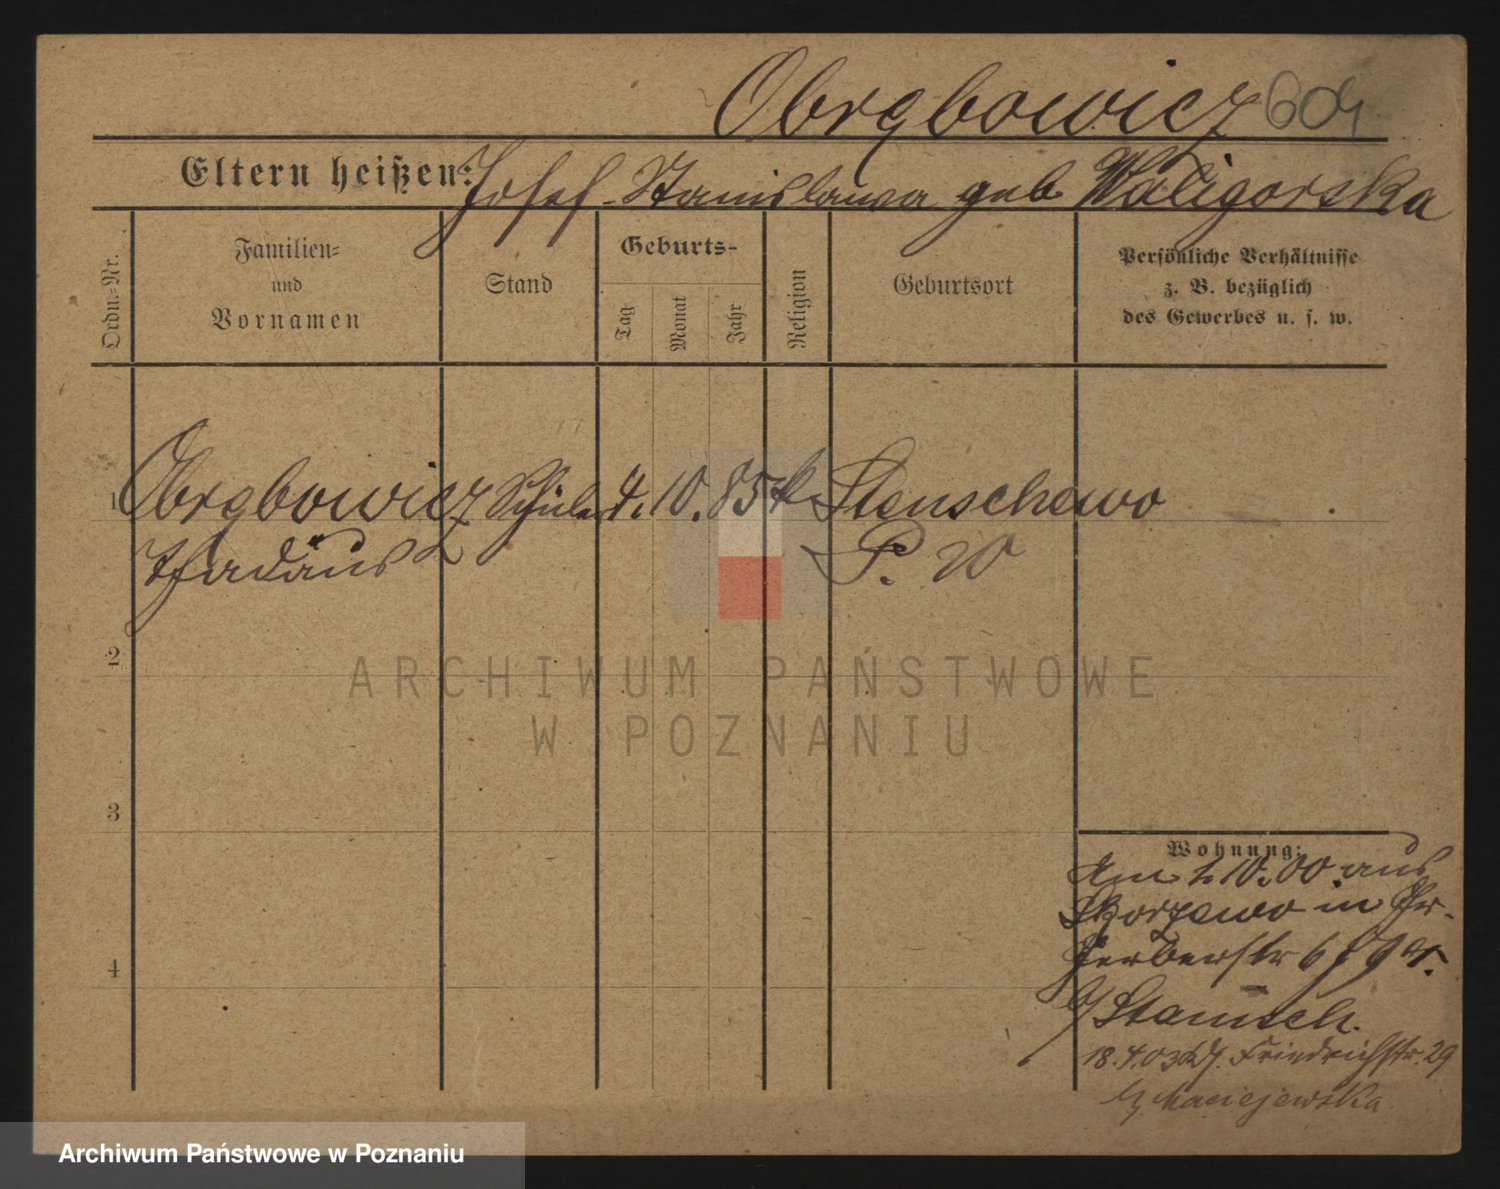 Obrąbowicz 604
Eltern heißen: Josef - Stanislawa geb Waligorska
Ordn.=Nr.
Familien=
und
Vornamen
Stand
Geburts-
Tag
Monat
Jahr
Religion
Geburtsort
Persönliche Verhältnisse
z. B. bezüglich
des Gewerbes u. s. w.
1 Obrąbowicz Schüler 4. 10. 85 k Stenschewo
Thadäus P. W
2
ARCHIWUM PAŃSTWOWE
W POZNANIU
3
Wohnung:
Am 1. 10. 00 aus
Skorzewo in Gr.
Gerberstr 6
b/ Stanisch.
4
18.4.03 Friedrichstr. 29
b/ Maciejewska
Archiwum Państwowe w Poznaniu